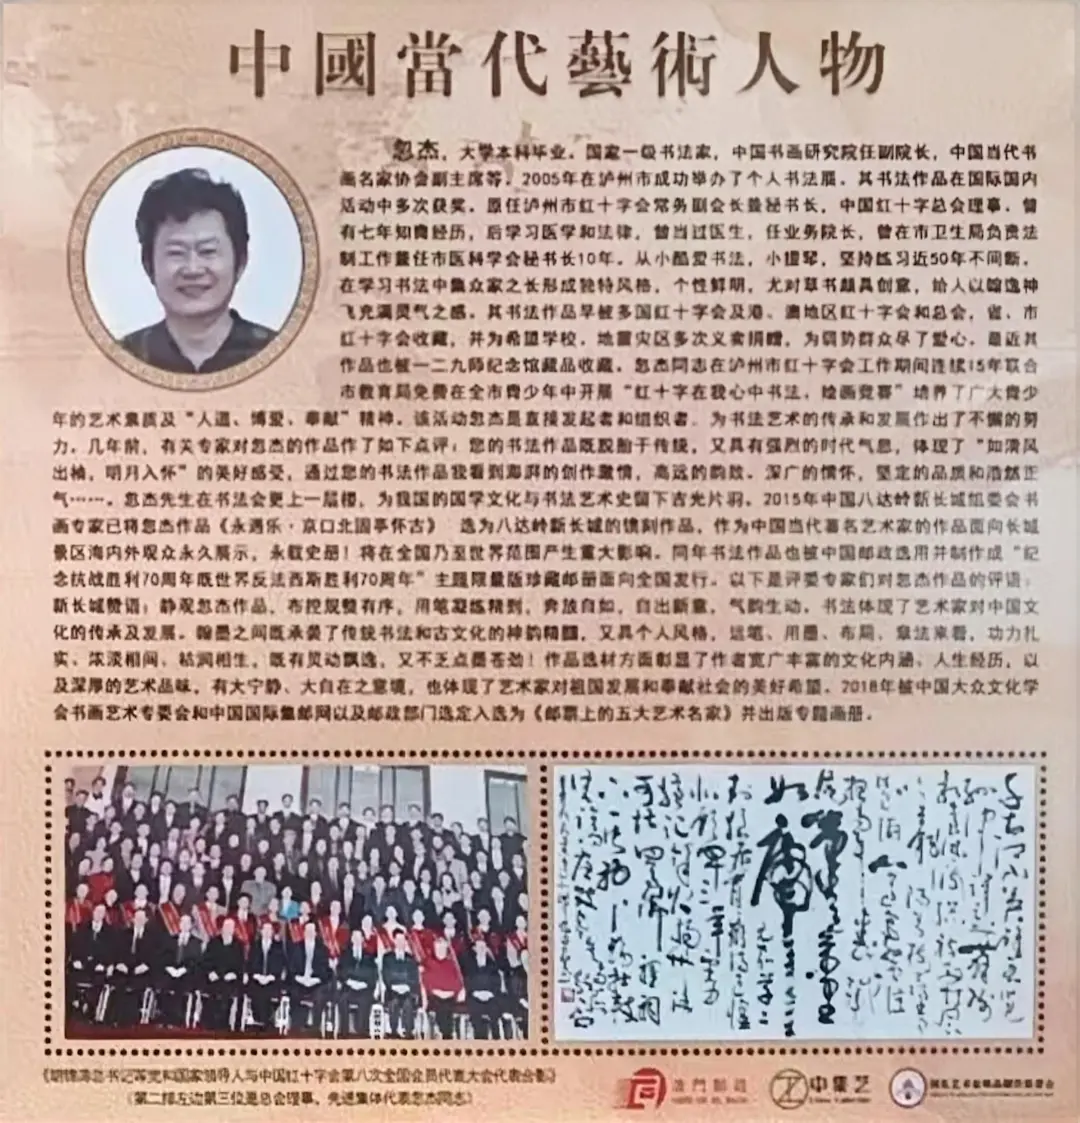 中國當代藝術人物
忽杰，大学本科毕业。国家一级书法家，中国书画研究院任副院长，中国当代书
画名家协会副主席等。2005年在泸州市成功举办了个人书法展。其书法作品在国际国内
活动中多次获奖。原任泸州市红十字会常务副会长兼秘书长，中国红十字总会理事。曾
有七年知青经历，后学习医学和法律，曾当过医生，任业务院长，曾在市卫生局负责法
制工作兼任市医科学会秘书长10年。从小酷爱书法，小提琴，坚持练习近50年不间断。
在学习书法中集众家之长形成独特风格，个性鲜明，尤对草书颇具创意，给人以翰逸神
飞充满灵气之感。其书法作品早被多国红十字会及港、澳地区红十字会和总会，省、市
红十字会收藏，并为希望学校、地震灾区多次义卖捐赠，为弱势群众尽了爱心。最近其
作品也被一二九师纪念馆藏品收藏。忽杰同志在泸州市红十字会工作期间连续15年联合
市教育局免费在全市青少年中开展“红十字在我心中书法、绘画竞赛”培养了广大青少
年的艺术素质及“人道、博爱、奉献”精神。该活动忽杰是直接发起者和组织者，为书法艺术的传承和发展作出了不懈的努
力。几年前，有关专家对忽杰的作品作了如下点评：您的书法作品既脱胎于传统，又具有强烈的时代气息，体现了“如清风
出袖，明月入怀”的美好感受，通过您的书法作品我看到澎湃的创作激情，高远的韵致。深广的情怀，坚定的品质和浩然正
气……。忽杰先生在书法会更上一层楼，为我国的国学文化与书法艺术史留下吉光片羽。2015年中国八达岭新长城组委会书
画专家已将忽杰作品《永遇乐·京口北固亭怀古》 选为八达岭新长城的镌刻作品，作为中国当代著名艺术家的作品面向长城
景区海内外观众永久展示，永载史册！将在全国乃至世界范围产生重大影响。同年书法作品也被中国邮政选用并制作成“纪
念抗战胜利70周年既世界反法西斯胜利70周年”主题限量版珍藏邮册面向全国发行。以下是评委专家们对忽杰作品的评语：
新长城赞语：静观忽杰作品，布控规整有序，用笔凝练精到，奔放自如，自出新意，气韵生动。书法体现了艺术家对中国文
化的传承及发展。翰墨之间既承袭了传统书法和古文化的神韵精髓，又具个人风格，运笔、用墨、布局、章法来看，功力扎
实、浓淡相间、枯润相生，既有灵动飘逸，又不乏点墨苍劲！作品选材方面彰显了作者宽广丰富的文化内涵、人生经历，以
及深厚的艺术品味，有大宁静、大自在之意境，也体现了艺术家对祖国发展和奉献社会的美好希望。2018年被中国大众文化学
会书画艺术专委会和中国国际集邮网以及邮政部门选定入选为《邮票上的五大艺术名家》并出版专题画册。
《胡锦涛总书记等党和国家领导人与中国红十字会第八次全国会员代表大会代表合影》
（第二排左边第三位是总会理事、先进集体代表忽杰同志）
澳門郵政
中集艺